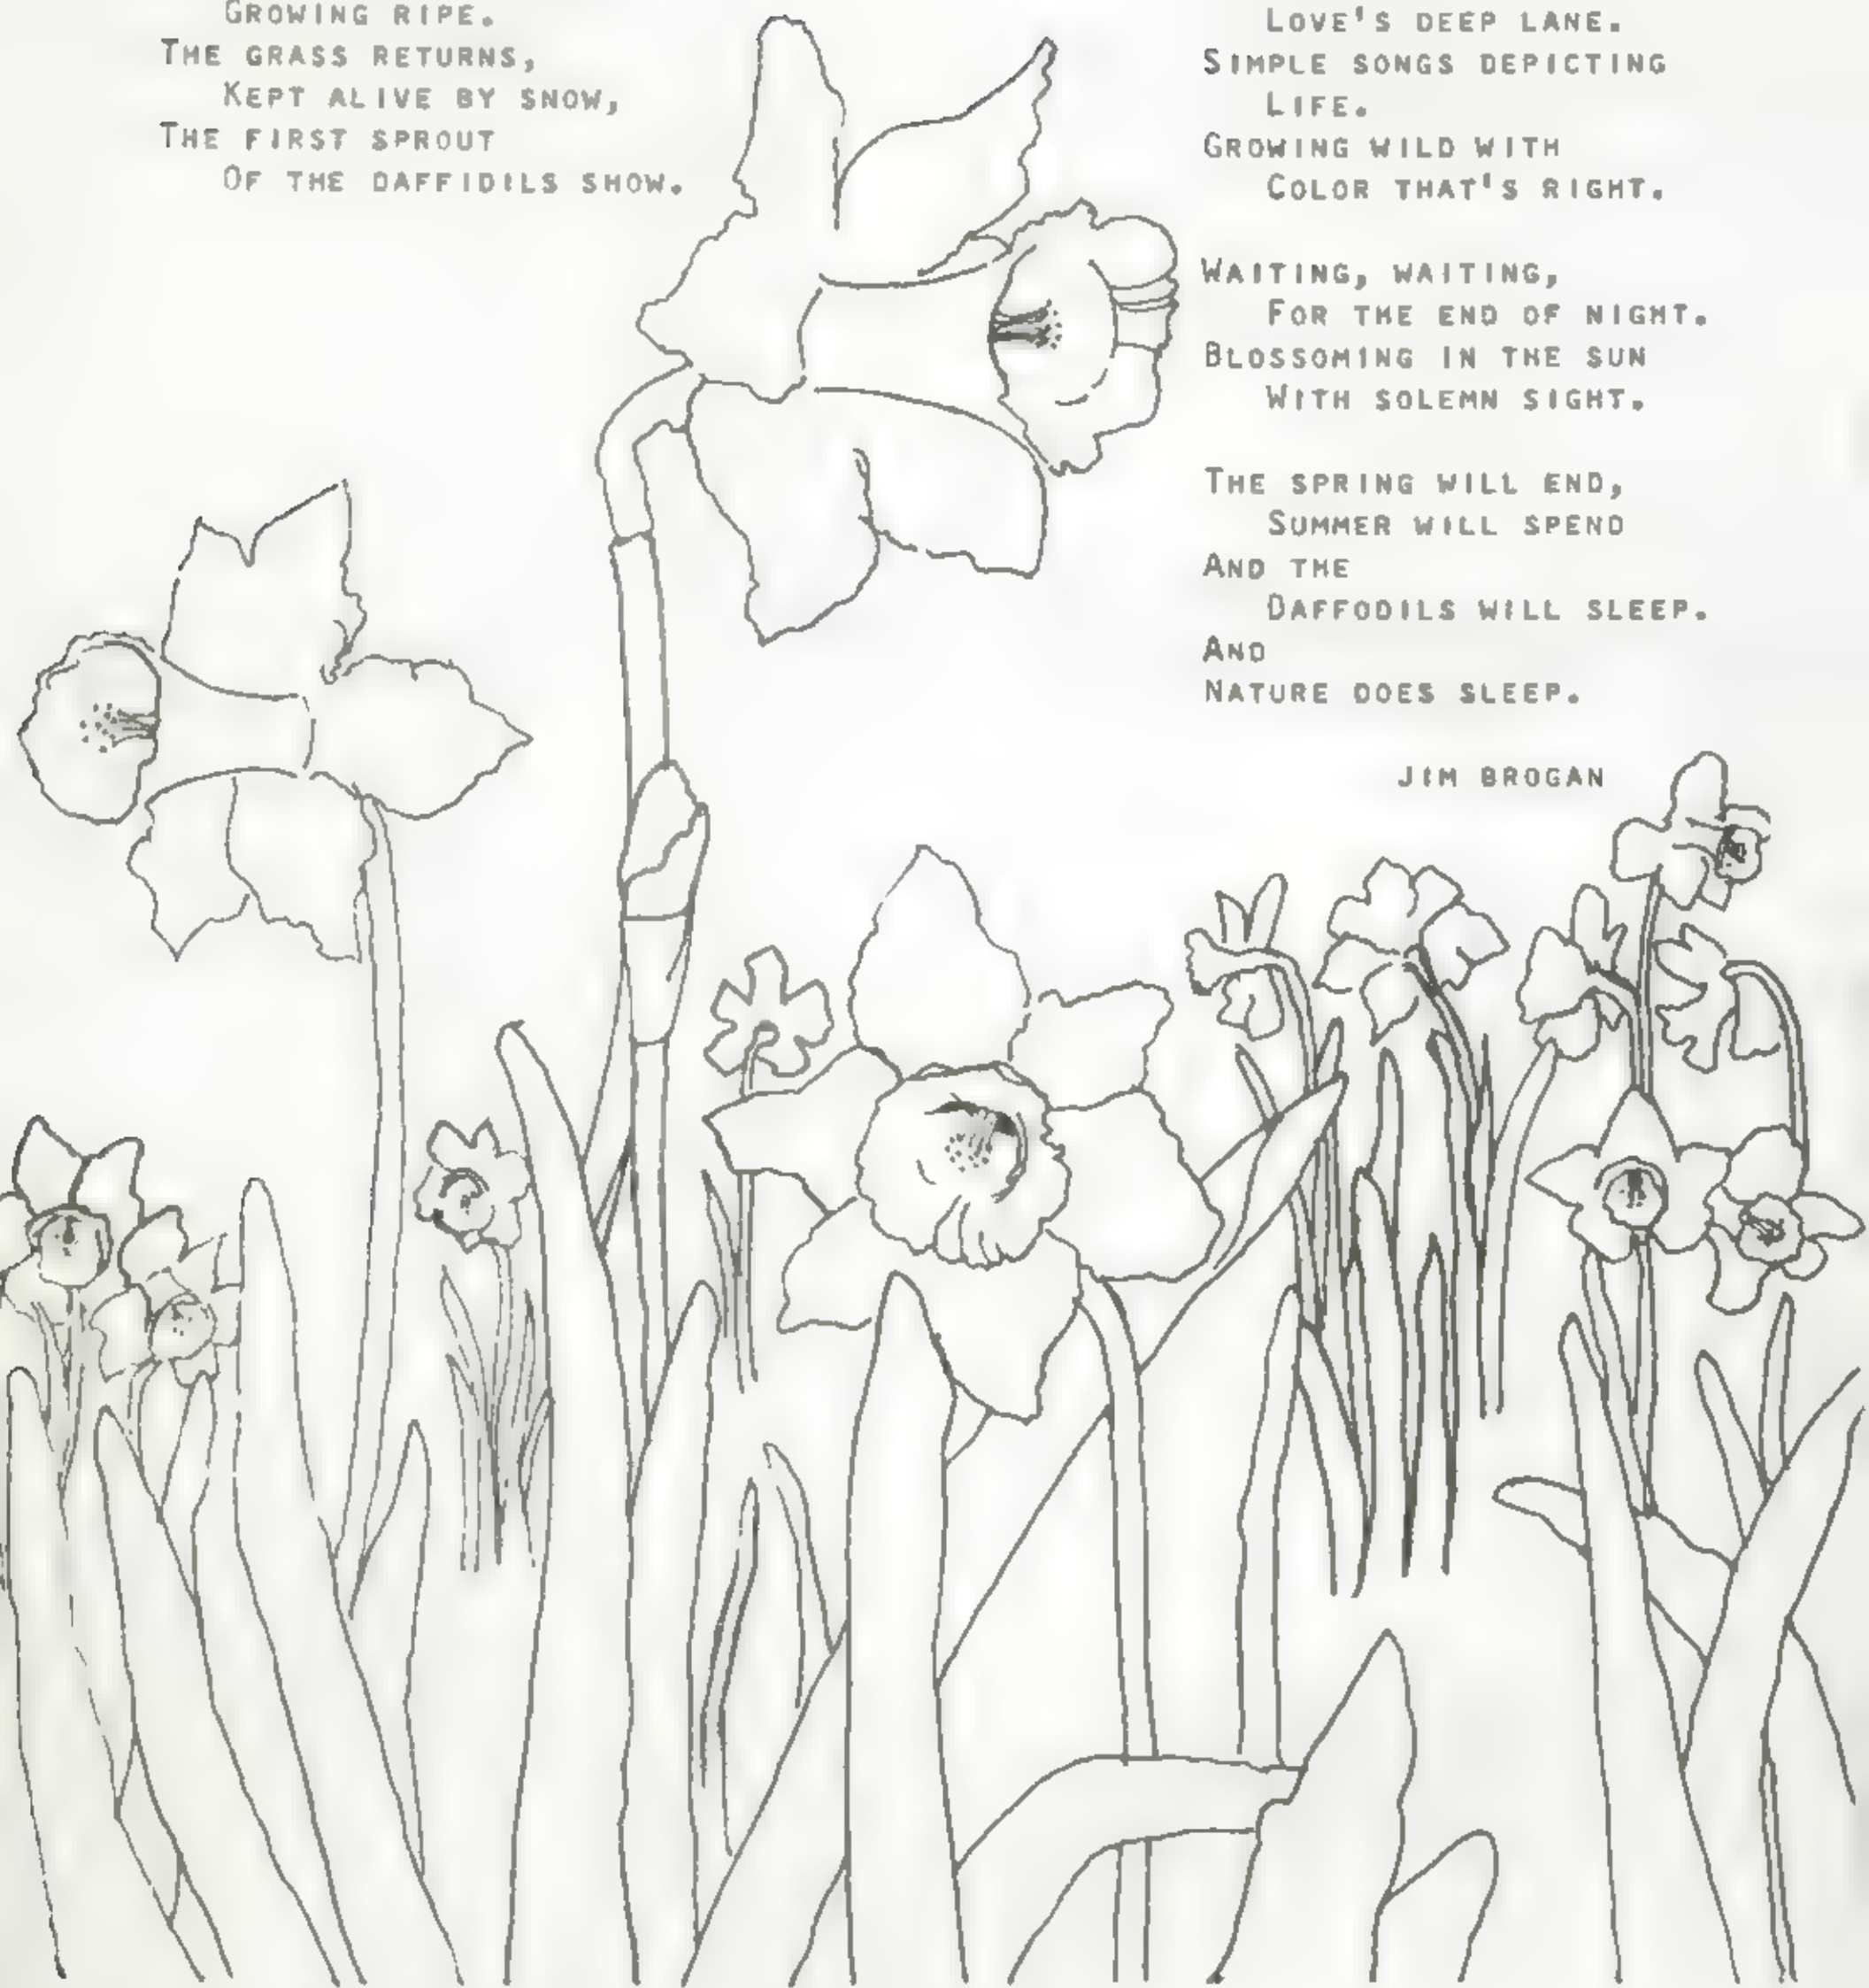 GROWING RIPE.
THE GRASS RETURNS,
KEPT ALIVE BY SNOW,
THE FIRST SPROUT
OF THE DAFFIDILS SHOW.
LOVE'S DEEP LANE.
SIMPLE SONGS DEPICTING
LIFE.
GROWING WILD WITH
COLOR THAT'S RIGHT.
WAITING, WAITING,
FOR THE END OF NIGHT.
BLOSSOMING IN THE SUN
WITH SOLEMN SIGHT.
THE SPRING WILL END,
SUMMER WILL SPEND
AND THE
DAFFODILS WILL SLEEP.
AND
NATURE DOES SLEEP.
JIM BROGAN